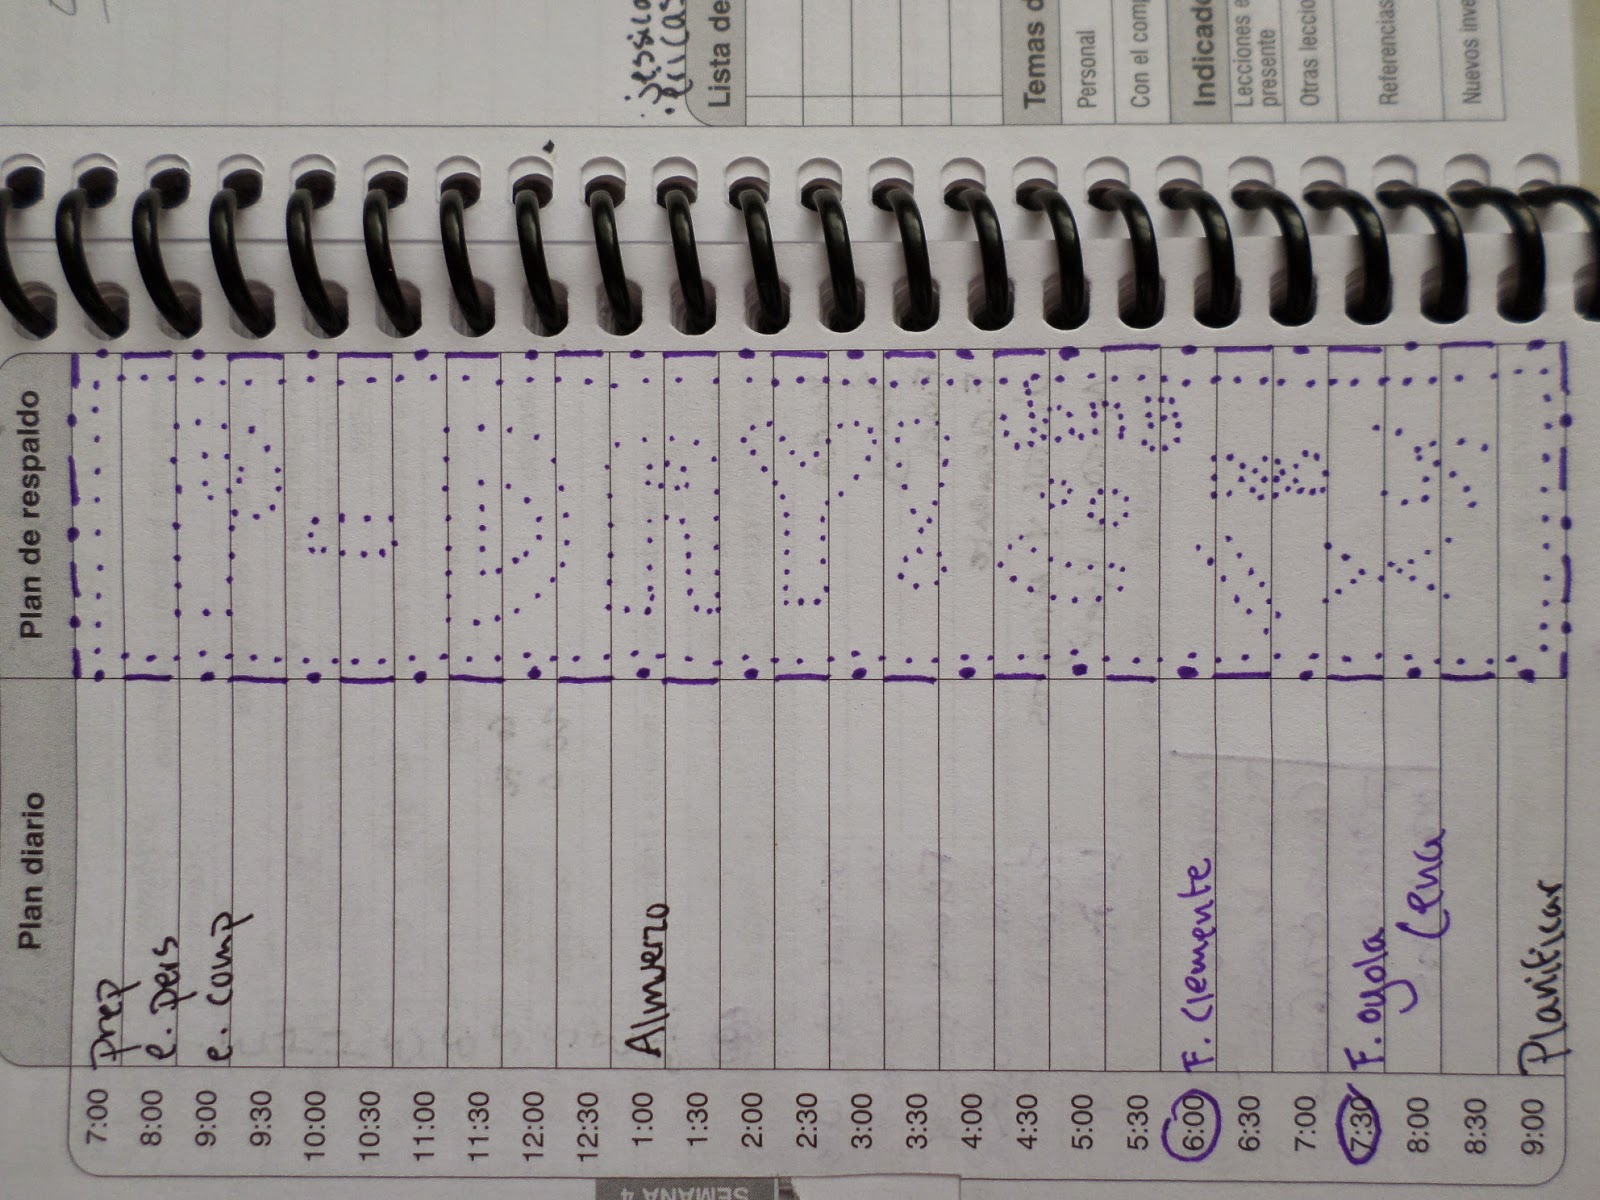 Plan diario Plan de respaldo
7:00 Prep
8:00 e. pers
9:00 e. comp
9:30
10:00
10:30
11:00
11:30
12:00
12:30
1:00 Almuerzo
1:30
2:00
2:30
3:00
3:30
4:00
4:30
5:00
5:30
6:00 F. Clemente
6:30
7:00
7:30 F. oyola
8:00 Cena
8:30
9:00 Planificar
SEMANA 4
Jessica
Lista de
Temas d
Personal
Con el comp
Indicado
Lecciones e
presente
Otras leccio
Referencias
Nuevos inve